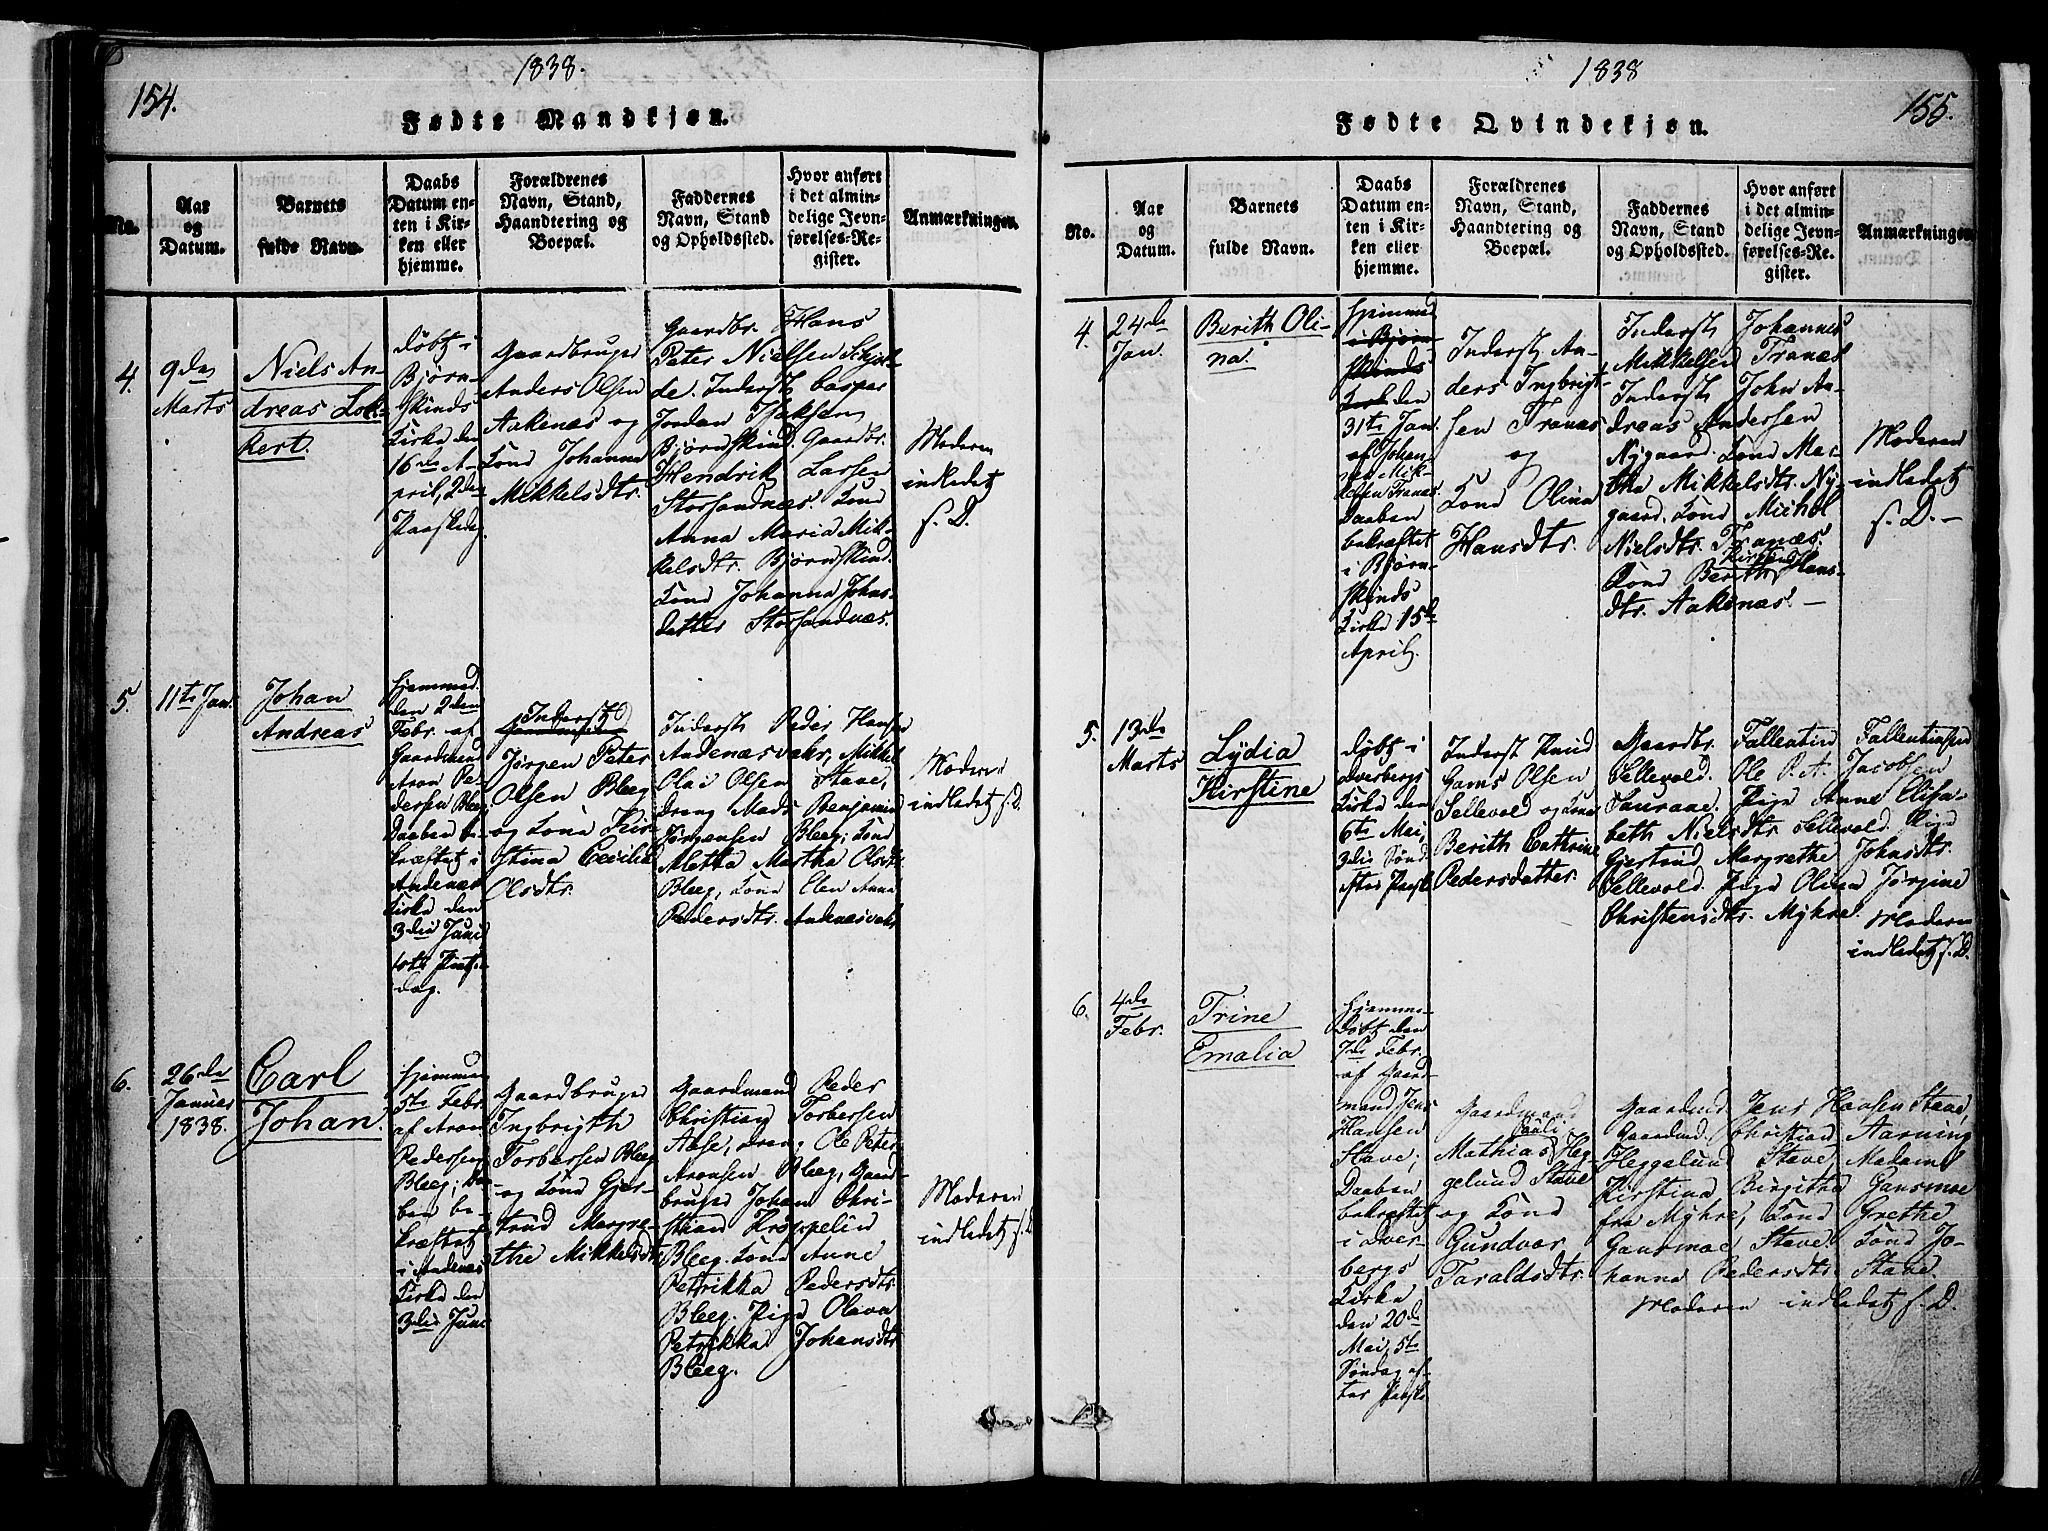 154.
1838.
Fødte Mandkjøn.
No.
Aar
og
Datum.
Barnets
fulde Navn.
Daabs
Datum en-
ten i Kir-
ken eller
hjemme.
Forældrenes
Navn, Stand,
Haandtering og
Boepæl.
Faddernes
Navn, Stand
og Opholdssted.
Hvor anført
i det almin-
delige Jevn-
førelses-Re-
gister.
Anmærkninger.
4.
9de
Marts
Niels An-
dreas Lok-
kert.
døbt i
Bjørn-
skinds
Kirke den
16de A-
pril, 2den
Paaskedag
Gaardbruger
Anders Olsen
Aakenæs og
Kone Johanna
Mikkelsdtr.
Gaardbr. Hans
Peter Nielsen
de. Inderst Caspar
Jordan
Bjørnskind. Gaardbr.
Hendrik Larsen
Storsandnæs. Kone
Anna Maria Mik-
kelsdtr. Bjørnskind.
Kone Johanna Johns-
datter Storsandnæs.
Moderen
indledet
f. D.
5.
11te Jan.
Johan
Andreas
hjemmed.
den 2den
Febr. af
Gaardmand
Aron Pe-
dersen Bleeg
Daaben be-
kræftet i
Andenæs
Kirke den
3die Juni
1ste Pintse-
dag.
Inderst
Jørgen Peter
Olsen Bleeg
og Kone Kir-
stina Cecilie
Olsdtr.
Inderst Peder Hansen
Andenæsvahr, Mikkel
Olai Olsen Stave,
dreng Mads Benjamin
Jørgensen Bleeg; Kone
Aletta Martha Olsdtr.
Bleeg, Kone Elen Anna
Pedersdtr. Andenæsvahr
Moderen
indledet f. D.
6.
26de
Januar
1838.
Carl
Johan.
hjemme
5te Febr.
af Aron
Pedersen
Bleeg; Daa-
ben be-
kræftet
i Andenæs
Kirke den
3die Juni
Gaardbruger
Ingbrigth
Torbersen Bleeg
og Kone Gjer-
trud Margre-
the Mikkelsdtr.
Gaardmand Peder
Christian Torbersen
Aase, dreng Ole Peter
Aronsen Bleeg, Gaard-
bruger Johan Chri-
stian Kroppelin
Bleeg. Kone Anne
Petrikka Pedersdtr.
Bleeg. Pige Olava
Petrikka Johansdtr.
Bleeg.
Moderen
indledet f. D.
1838
155.
Fødte Qvindekjøn.
No.
Aar
og
Datum.
Barnets
fulde Navn.
Daabs
Datum en-
ten i Kir-
ken eller
hjemme.
Forældrenes
Navn, Stand,
Haandtering og
Boepæl.
Faddernes
Navn, Stand
og Opholdssted.
Hvor anført
i det almin-
delige Jevn-
førelses-Re-
gister.
Anmærkninger
4.
24de
Jan.
Berith Oli-
na.
hjemmed
i Bjørn-
skinds
Kirke den
31te Jan.
af Johan-
nes Mik-
kelsen Tranæs.
Daaben
bekræftet
i Bjørn-
skinds
Kirke 15de
April.
Inderst An-
ders Ingbrigt-
sen Tranæs
og
Kone Olina
Hansdtr.
Inderst Johannes
Mikkelsen Tranæs
Inderst John An-
dreas Andersen
Nygaard. Kone Mar-
tha Mikkelsdtr. Ny-
gaard. Kone Michol
Nielsdtr. Tranæs.
Kone Berith Kirstina Hans-
dtr. Aakenæs.
Moderen
indledet
f. D.
5.
13de
Marts
Lydia
Kirstine
døbt i
dverbergs
Kirke den
6te Mai,
3die Sønd.
efter Paaske
Inderst Knud
Gams Olsen
Sellevold og Kone
Berith Cathrine
Pedersdatter.
Gaardbr. Fallentin Fallentinsen
Sellevold. Ole P. A. Jacobsen
Saurane. Pige Anne Elisa-
beth Nielsdtr Sellevold. Pige
Gjertrud Margrethe Johnsdtr.
Sellevold. Pige Olina Jørgine
Christensdtr. Myhre. Moderen
indledet f. D.
6.
4de
Febr.
Trine
Emalia
hjemme-
døbt den
7de Febr.
af Gaard-
mand Jens
Hansen
Stave;
Daaben
bekræftet
i dver-
bergs
Kirke
den 20de
Mai, 5te
Søndag ef-
ter Paaske
Gaardmand
Mathias Pauli Heg-
gelund Stave
og Kone
Gundvor
Taraldsdtr.
Gaardmd. Jens Hansen Stave,
Gaardmd. Christian Aarning
Heggelund Stave, Madame
Kirstina Birgitha Jansmoe
fra Myhre, Kone Grethe
Gansmoe Stave. Kone Jo-
hanna Pedersdtr. Stave.
Moderen indledet f. D.